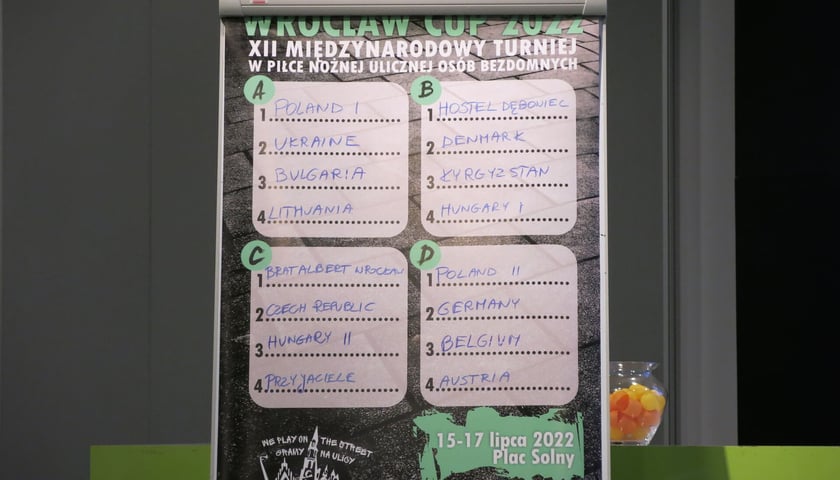 WROCŁAW CUP 2022
XII MIĘDZYNARODOWY TURNIEJ
W PIŁCE NOŻNEJ ULICZNEJ OSÓB BEZDOMNYCH
A
1 POLAND I
2 UKRAINE
3 BULGARIA
4 LITHUANIA
B
1 HOSTEL DĘBONIEC
2 DENMARK
3 KYRGYZSTAN
4 HUNGARY I
C
1 BRATALBERT WROCŁAW
2 CZECH REPUBLIC
3 HUNGARY II
4 PRZYJACIELE
D
1 POLAND II
2 GERMANY
3 BELGIUM
4 AUSTRIA
WE PLAY ON THE STREET
GRAMY NA ULICY
15-17 lipca 2022
Plac Solny